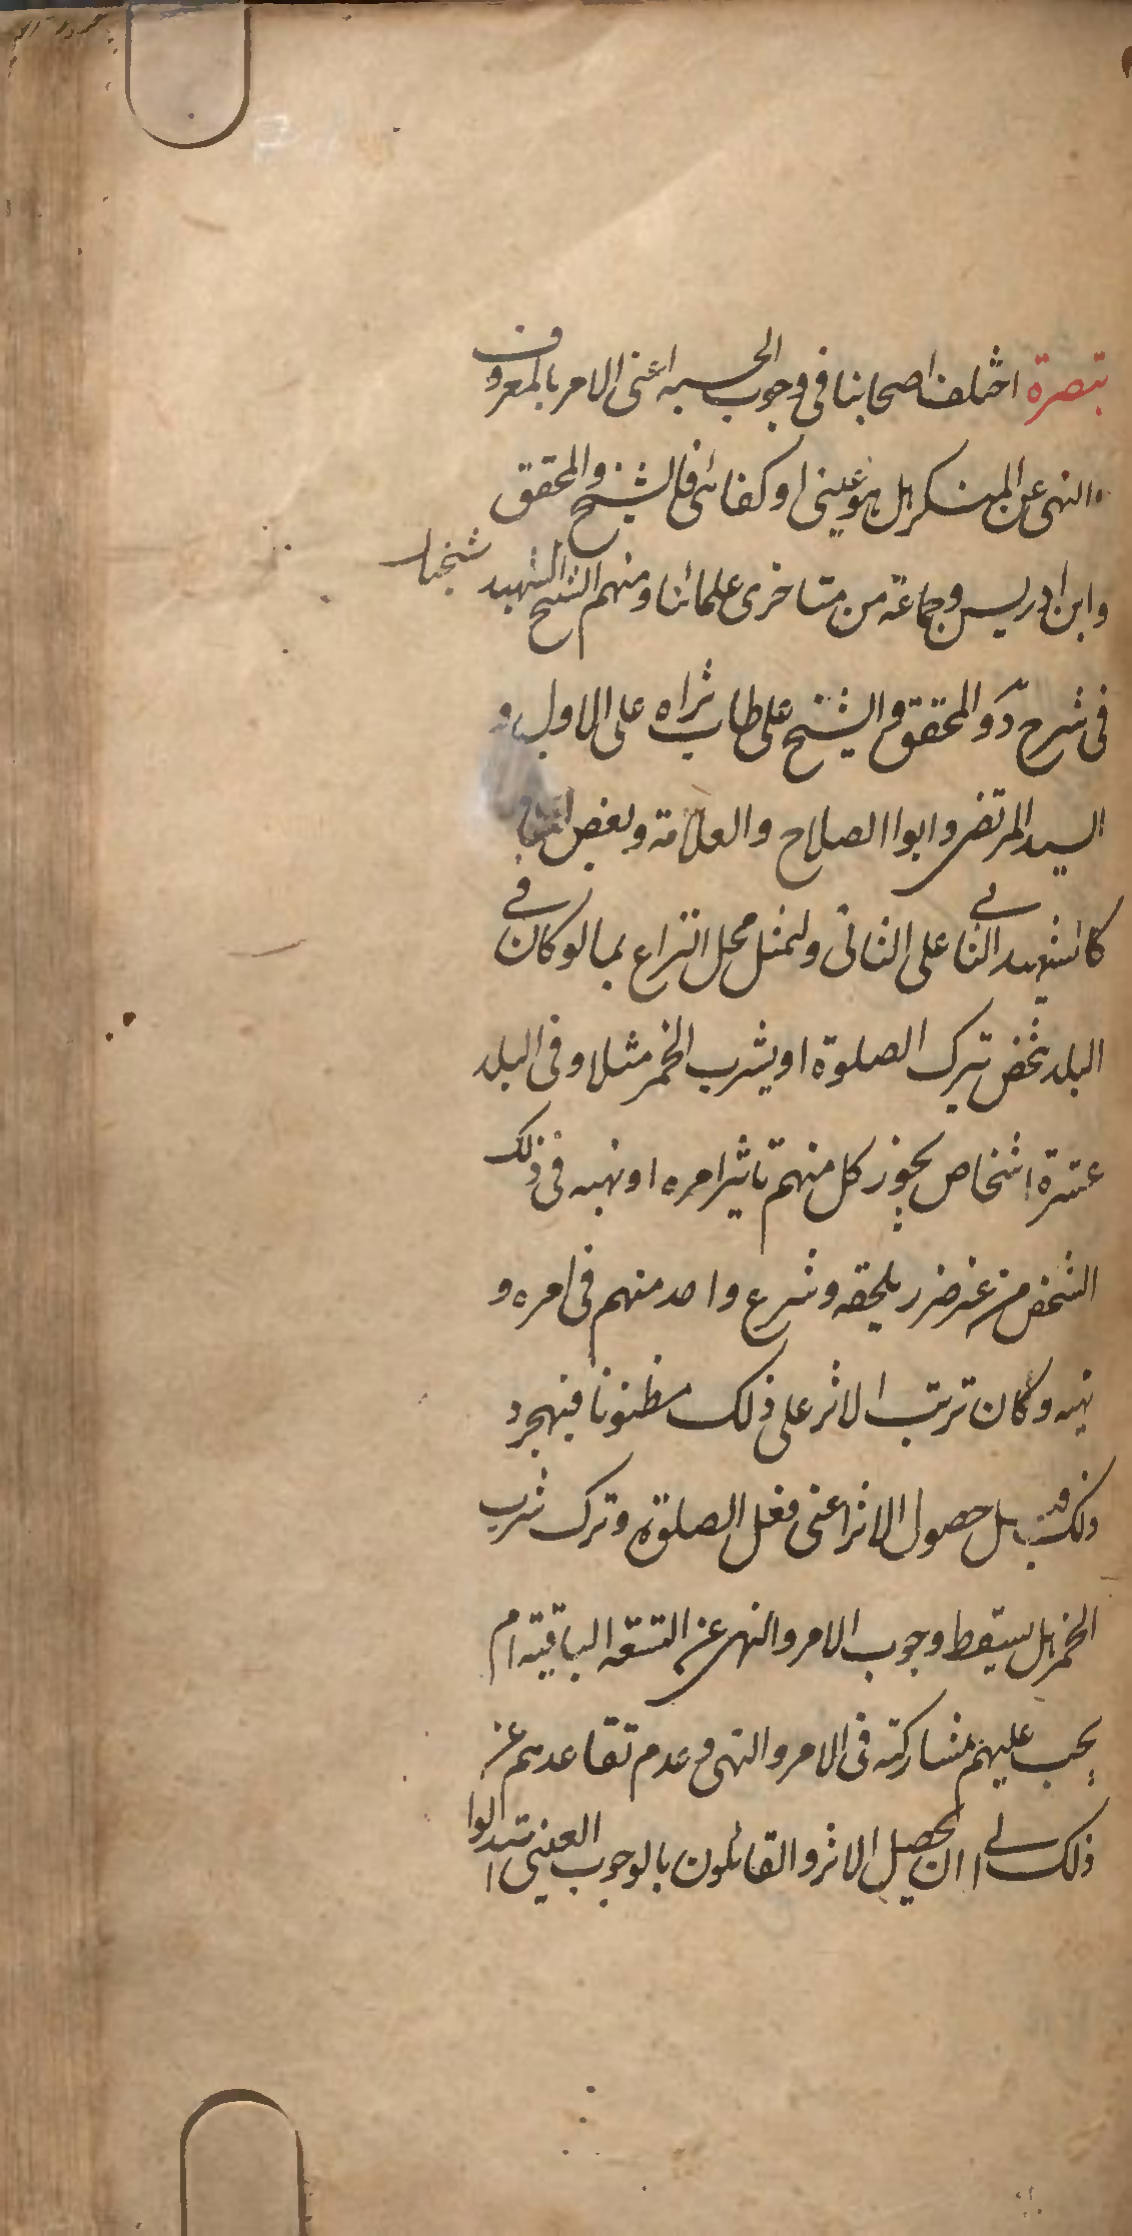 تبصرة اختلف اصحابنا فى وجوب الحسبه اعنى الامر بالمعروف
والنهى عن المنكر هل هو عينى او كفائى فالشيخ والمحقق
وابن ادريس وجماعة من متاخرى علمائنا ومنهم الشيخ الشهيد
فى شرح د والمحقق الشيخ على طاب ثراه على الاول و
السيد المرتضى وابوا الصلاح والعلامة وبعض
كالشهيد الثانى على الثانى ولنمثل محل النزاع بما لو كان فى
البلد شخص يترك الصلوة او يشرب الخمر مثلا وفى البلد
عشرة اشخاص يجوز كل منهم تاثير امره او نهيه فى ذلك
الشخص من غير ضرر يلحقه وشرع واحد منهم فى امره و
نهيه وكان ترتب الاثر على ذلك مظنونا فبمجرد
ذلك وقبل حصول الاثر اعنى فعل الصلوة وترك شرب
الخمر هل يسقط وجوب الامر والنهى عن التسعة الباقية ام
يجب عليهم مشاركته فى الامر والنهى وعدم تقاعدهم عن
ذلك الى ان يحصل الاثر والقائلون بالوجوب العينى استدلوا